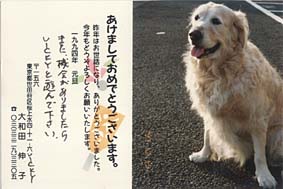 あけましておめでとうございます。
昨年はお世話になり、ありがとうございました。
今年もどうぞよろしくお願いいたします。
一九九四年 元旦
また、機会がありましたら
遊んで下さい。
〒一五六
東京都世田谷区桜上水四-十一六
大和田 伸子